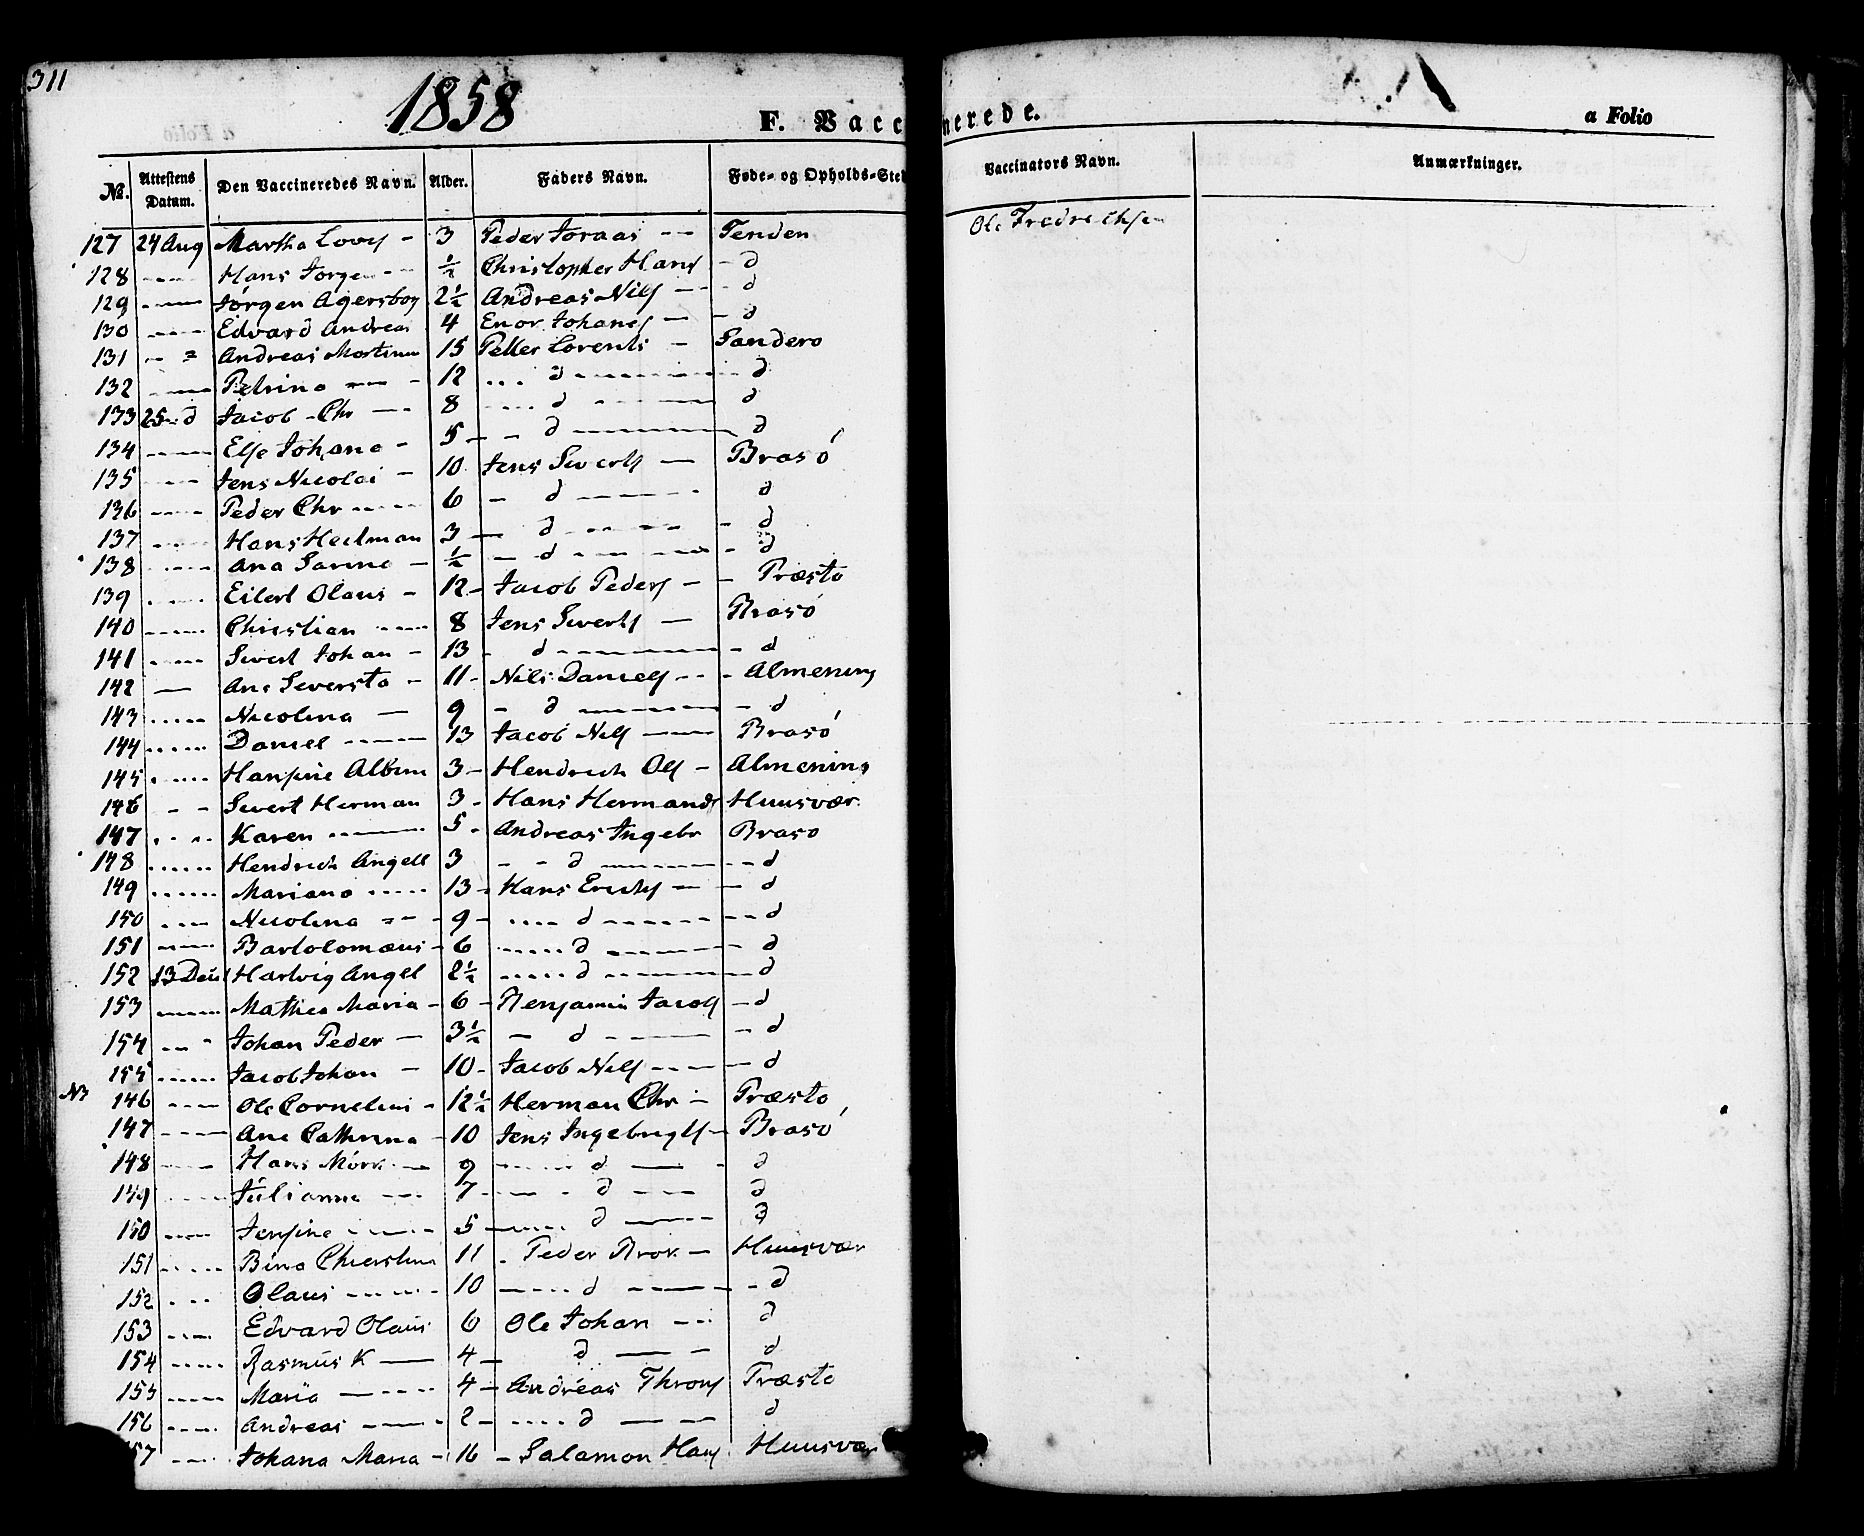 311
1858
F. Vaccinerede.
a Folio
№. Attestens Datum. Den Vaccineredes Navn. Alder. Faders Navn. Føde- og Opholds-Sted Vaccinators Navn. Anmærkninger.
127 24 Aug Martha Lovis - 3 Peder Joraas -- Tenden Ole Fredrechsen
128 --- Hans Jørgen -- ½ Christopher Hans - d
129 --- Jørgen Agersboy 2½ Andreas Nils -- - d
130 --- Edvard Andreas 4 Enor Johanes - - d
131 -- = Andreas Mortinus 15 Petter Lorents - Sandero
132 --- Petrina --- 12 ... d --- d
133 25 d Jacob Chr --- 8 ... d --- d
134 --- Else Johana - 5 - - d --- d
135 --- Jens Nicolai - 10 Jens Siverts - Brasó
136 --- Peder Chr --- 6 - d --- d
137 --- Hans Heilman 3 - d --- - d
138 --- Ana Sarine - ½ - d --- - d
139 --- Eilert Olaus - 12 - Jacob Peders - - Præsto
140 --- Christian --- 8 Jens Siverts - Brasó
141 --- Sivert Johan - 13 - d --- - d
142 --- Ane Seversta - 11 - Nils Daniels -- - Almening
143 --- Nicolina - 9 - d --- - d
144 --- Daniel --- 13 Jacob Nils --- Brasó
145 --- Hansine Albine 3 - Hendrich Ols - Almening
146 - - Sivert Herman 3 - Hans Hermands Huusvær
147 --- Karen --- 5 - Andreas Ingebr Braso
148 --- Hendrich Angell 3 - - d --- - - d
149 --- Mariana --- 13 - Hans Erichs - - d
150 --- Nicolina = - - 9 - ... d --- - - d
151 --- Bartolomæus - 6 ... d --- - d
152 13 Deis Hartvig Angel 2½ ... d --- - d
153 --- Mathea Maria - 6 - Benjamin Jacobs - d
154 --- Johan Peder - 3½ - d --- - d
155 --- Jacob Johan - 10 - Jacob Nils --- - d
N3 146 --- Ole Cornelius - 12½ Herman Chr - Præsto
147 --- Ane Cathrina - 10 Jens Ingebrigts - Brasó
148 --- Hans Mörk - 9 ... d --- - d
149 --- Julianne --- 7 --- - d --- d
150 --- Jensine --- 5 --- d --- d
151 --- Bina Chierstina 11 - Peder Brok - Huusvær
152 --- Olaus --- 10 --- d --- - d
153 --- Edvard Olaus 6 Ole Johan --- d
154 --- Rasmus K --- 4 - d --- d
155 --- Maria --- 4 - Andreas Throns Præsto
156 --- Andreas --- 2 - ... d --- d
57 --- Johana Maria - 16 - Salamon Hans Huusvær